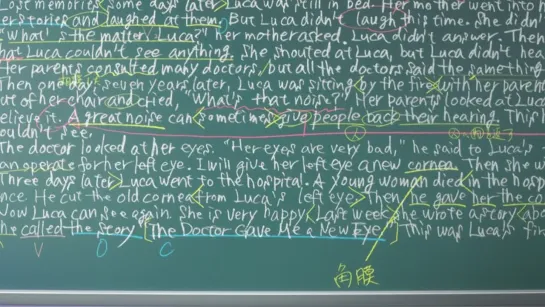 lost memories some days later Luca was still in bed. Her mother went into
stories and laughed at them. But Luca didn't laugh this time. She didn
"What's the matter, Luca?" her mother asked. Luca didn't answer. Then
at Luca couldn't see anything. She shouted at Luca, but Luca didn't hea
Her parents consulted many doctors, but all the doctors said the same thing
Then one day seven years later, Luca was sitting by the fire with her parent
out of her chair and cried, "What's that noise?" Her parents looked at Luca
believe it. A great noise can sometimes give people back their hearing. This
ouldn't see.
人
The doctor looked at her eyes. "Her eyes are very bad," he said to Luca's
an operate for her left eye. I will give her left eye a new cornea. Then she w
Three days later Luca went to the hospital. A young woman died in the hosp
once. He cut the old cornea from Luca's left eye. Then he gave her the co
Now Luca can see again. She is very happy. Last week she wrote a story abo
he called the story "The Doctor Gave Me a New Eye." This was Luca's firs
V O C
角膜